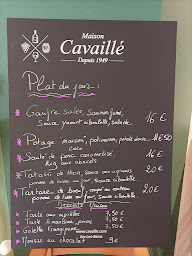 Maison
Cavaillé
Depuis 1949
Plat du jour :
Gaufre salée, Saumon fumé,
sauce yaourt ciboulette, salade
16 €
Potage maison, potimarron, patate douce
coco
11€50
Sauté de porc caramélisé,
Riz aux abricots
16 €
Tataki de thon, sauce aux agrumes
pomme de terre au four, sauce ciboulette.
20 €
Tartare de bœuf, coupé au couteau
pomme de terre au four, sauce ciboulette.
20€
Desserts Maison
Tarte aux myrtilles
7,50 €
Tarte
7,50 €
Galette Frangipane
7,50€
Mousse au chocolat
9€
www.cavaille.com
Aix-Les-Bains